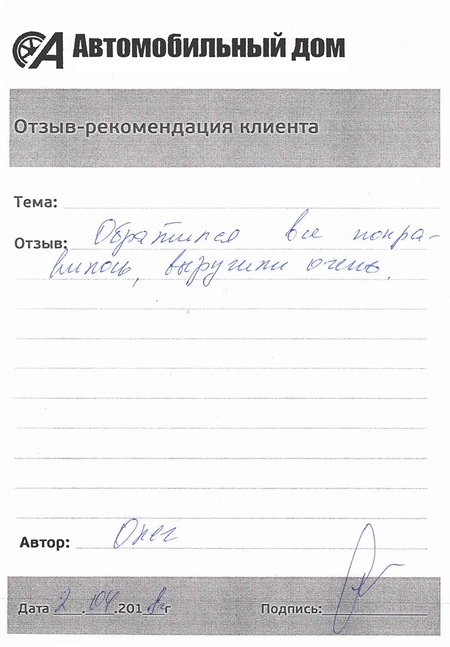 Автомобильный дом
Отзыв-рекомендация клиента
Тема:
Отзыв: Обратился все понра-
вилось, выручили очень.
Автор: Олег
Дата 2.04.2018г Подпись: